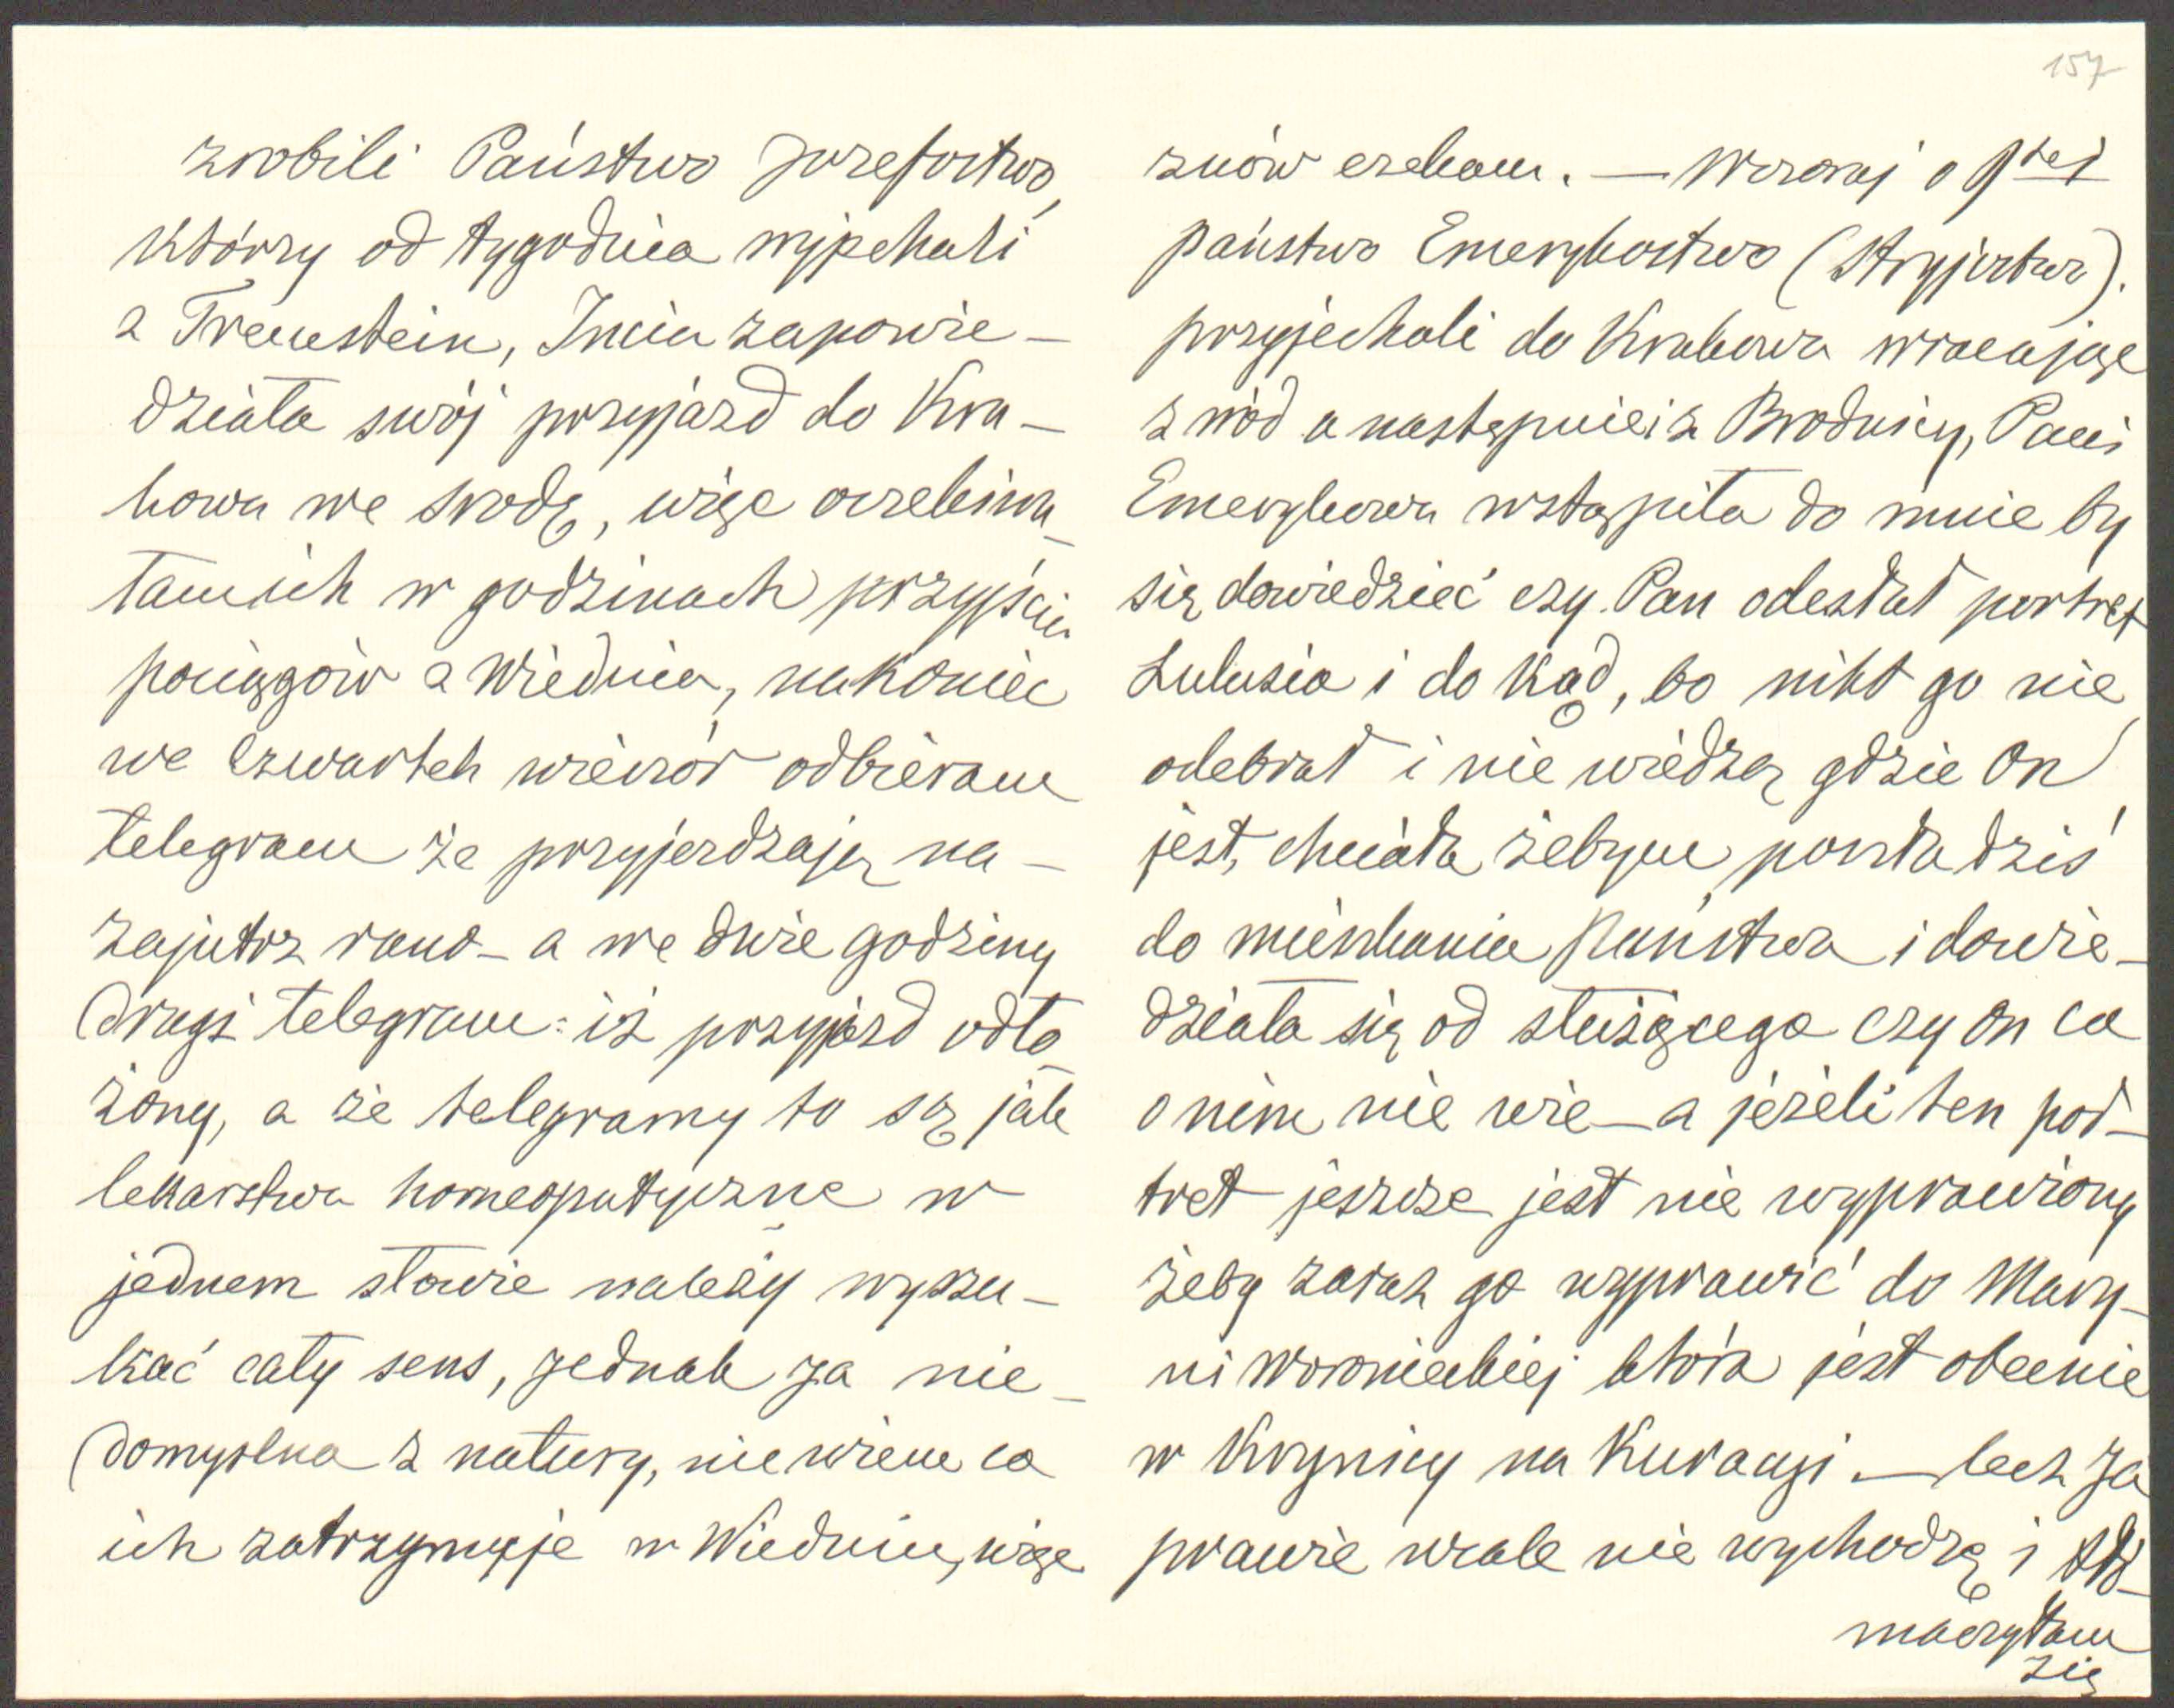 157
zrobili Państwo Józefostwo,
którzy od tygodnia wyjechali
z Trenestein, Incia zapowie-
działa swój przyjazd do Kra-
kowa we środę, więc oczekiwa-
łam ich w godzinach przyjścia
pociągów z Wiednia, nakoniec
we Czwartek wieczór odbieram
telegram że przyjerdzają na-
zajutrz rano - a we dwie godziny
drugi telegram: iż przyjazd odło-
żony, a że telegramy to są jak
lekarstwa homeopatyczne w
jednem słowie należy wyszu-
kać cały sens, jednak ja nie-
domyślna z natury, nie wiem co
ich zatrzymuje w Wiedniu, więc
znów czekam. — Wczoraj o 9tej
państwo Emerykostwo (Stryjostwo).
przyjechali do Krakowa wracając
z wód a następnie i z Brodnicy, Pani
Emerykowa wstąpiła do mnie by
się dowiedzieć czy Pan odesłał portret
Lulusia i do kąd, bo nikt go nie
odebrał i nie wiedzą gdzie On
jest, chciała żebym poszła dziś
do mieszkania Państwa i dowie-
działa się od służącego czy on co
o nim nie wie — a jeżeli ten por-
tret jeszcze jest nie wyprawiony
żeby zaraz go wyprawić do Mary-
ni Woronieckiej która jest obecnie
w Krynicy na Kuracyi. — lecz ja
prawie wcale nie wychodzę i tłó-
maczyłam
się